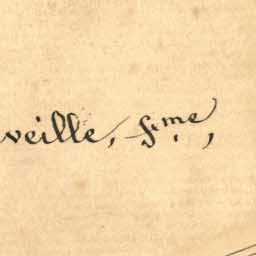 veille, f.me,